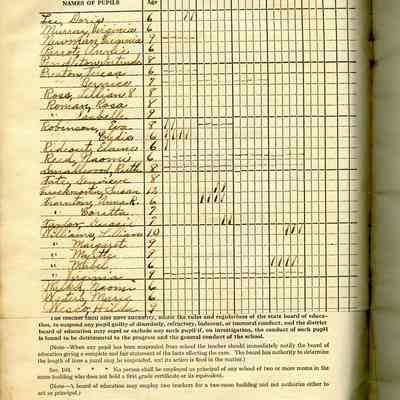 NAMES OF PUPILS Age
Lee, Doris 6
Murray, Virginia 6
Newman, Virginia 7
Annie 6
Pendleton, Gertrude 8
Preston, 6
" Bernice 7
Ross, Lillian 8 8
Roman, Rosa 8
" Isabelle 9
Robinson, Eva 8
6
Rideout, Elaine 6
Reed, Naomi 6
Ruth 8
Tate, Genevieve 8
Susan 12
Thornton, 6
" Loretta 7
Taylor, 8
Williams, Lillian 10
" Margaret 9
" Myrtle 7
" Mabel
" Virginia
Welch, Naomi 6
Marie 6
Wesco, Hilda 9
The teacher shall also have authority, under the rules and regulations of the state board of educa-
tion, to suspend any pupil guilty of disorderly, refractory, indecent, or immoral conduct, and the district
board of education may expel or exclude any such pupil if, on investigation, the conduct of such pupil
is found to be detrimental to the progress and the general conduct of the school.
(Note—When any pupil has been suspended from school the teacher should immediately notify the board of
education giving a complete and fair statement of the facts affecting the case. The board has authority to determine
the length of time a pupil may be suspended, and its action is final in the matter.)
Sec. 104. * * * No person shall be employed as principal of any school of two or more rooms in the
same building who does not hold a first grade certificate or its equivalent.
(Note—A board of education may employ two teachers for a two-room building and not authorize either to
act as principal.)